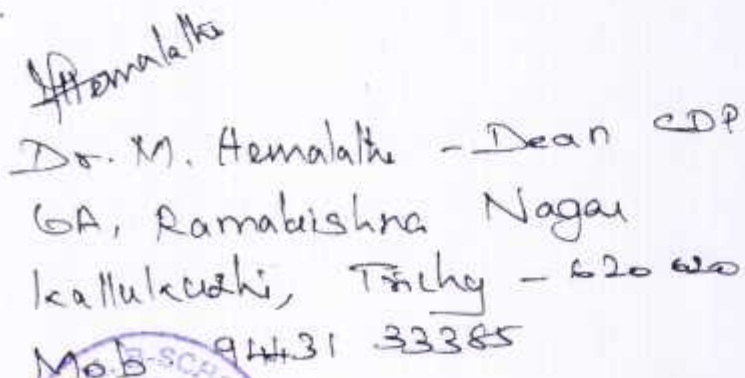 Hemalatha
Dr. M. Hemalatha - Dean CDP
6A, Ramakrishna Nagar
Kallukuzhi, Trichy - 620 020
Mob 94431 33385
B-SCHO